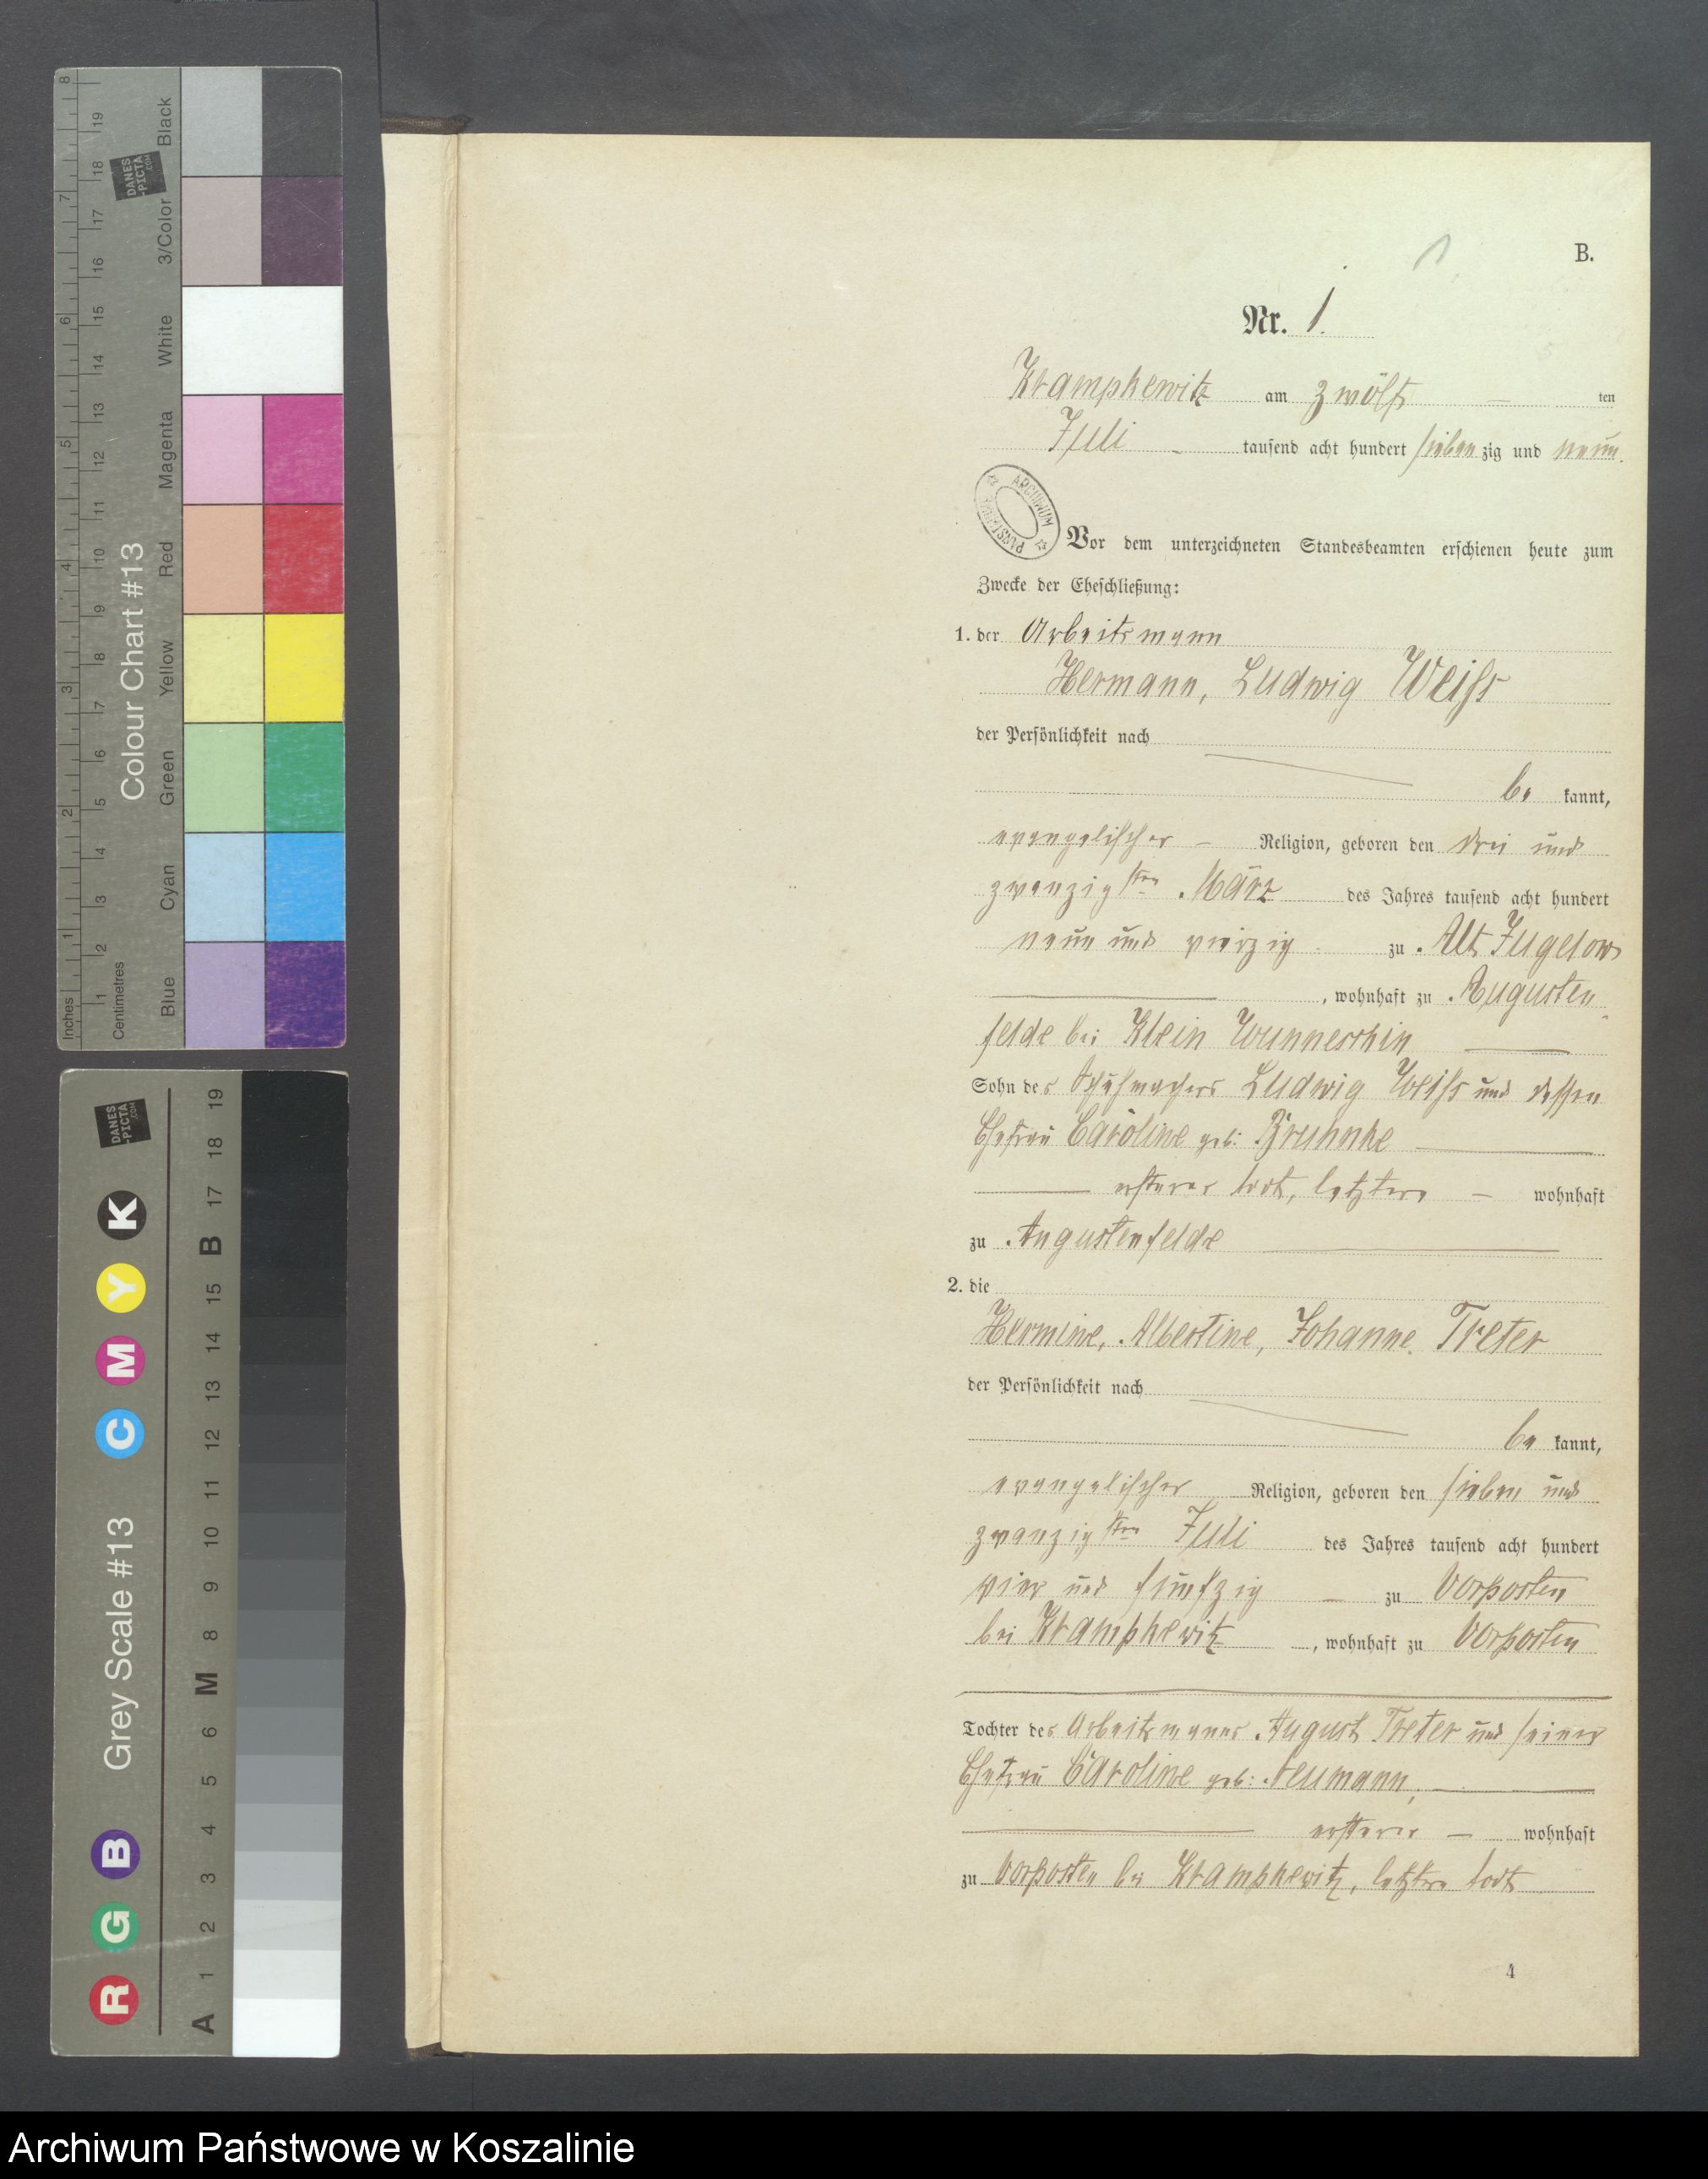 B.
Nr. 1.
Krampkewitz am zwölf ten
Juli tausend acht hundert siebenzig und neun.
ARCHIWUM PAŃSTWOWE
Vor dem unterzeichneten Standesbeamten erschienen heute zum
Zwecke der Eheschließung:
1. der Arbeitsmann
Hermann, Ludwig Weiss
der Persönlichkeit nach
be kannt,
evangelischer Religion, geboren den drei und
zwanzigsten März des Jahres tausend acht hundert
neun und vierzig zu Alt Jugelow
, wohnhaft zu Augusten
felde bei Klein Wunneschin
Sohn des Schuhmachers Ludwig Weiss und dessen
Ehefrau Caroline geb: Bruhnke
ersterer todt, letztere wohnhaft
zu Augustenfelde
2. die
Hermine, Albertine, Johanne Treter
der Persönlichkeit nach
be kannt,
evangelischer Religion, geboren den sieben und
zwanzigsten Juli des Jahres tausend acht hundert
vier und fünfzig zu Vorposten
bei Krampkewitz, wohnhaft zu Vorposten
Tochter des Arbeitsmanns August Treter und seiner
Ehefrau Caroline geb: Neumann,
ersterer wohnhaft
zu Vorposten bei Krampkewitz, letztre todt
4
Inches
Centimetres
Colour Chart #13
Blue Cyan Green Yellow Red Magenta White 3/Color Black
DANES-PICTA.COM
Grey Scale #13
R G B C M Y K
A 1 2 3 4 5 6 M 8 9 10 11 12 13 14 15 B 17 18 19
DANES-PICTA.COM
Archiwum Państwowe w Koszalinie